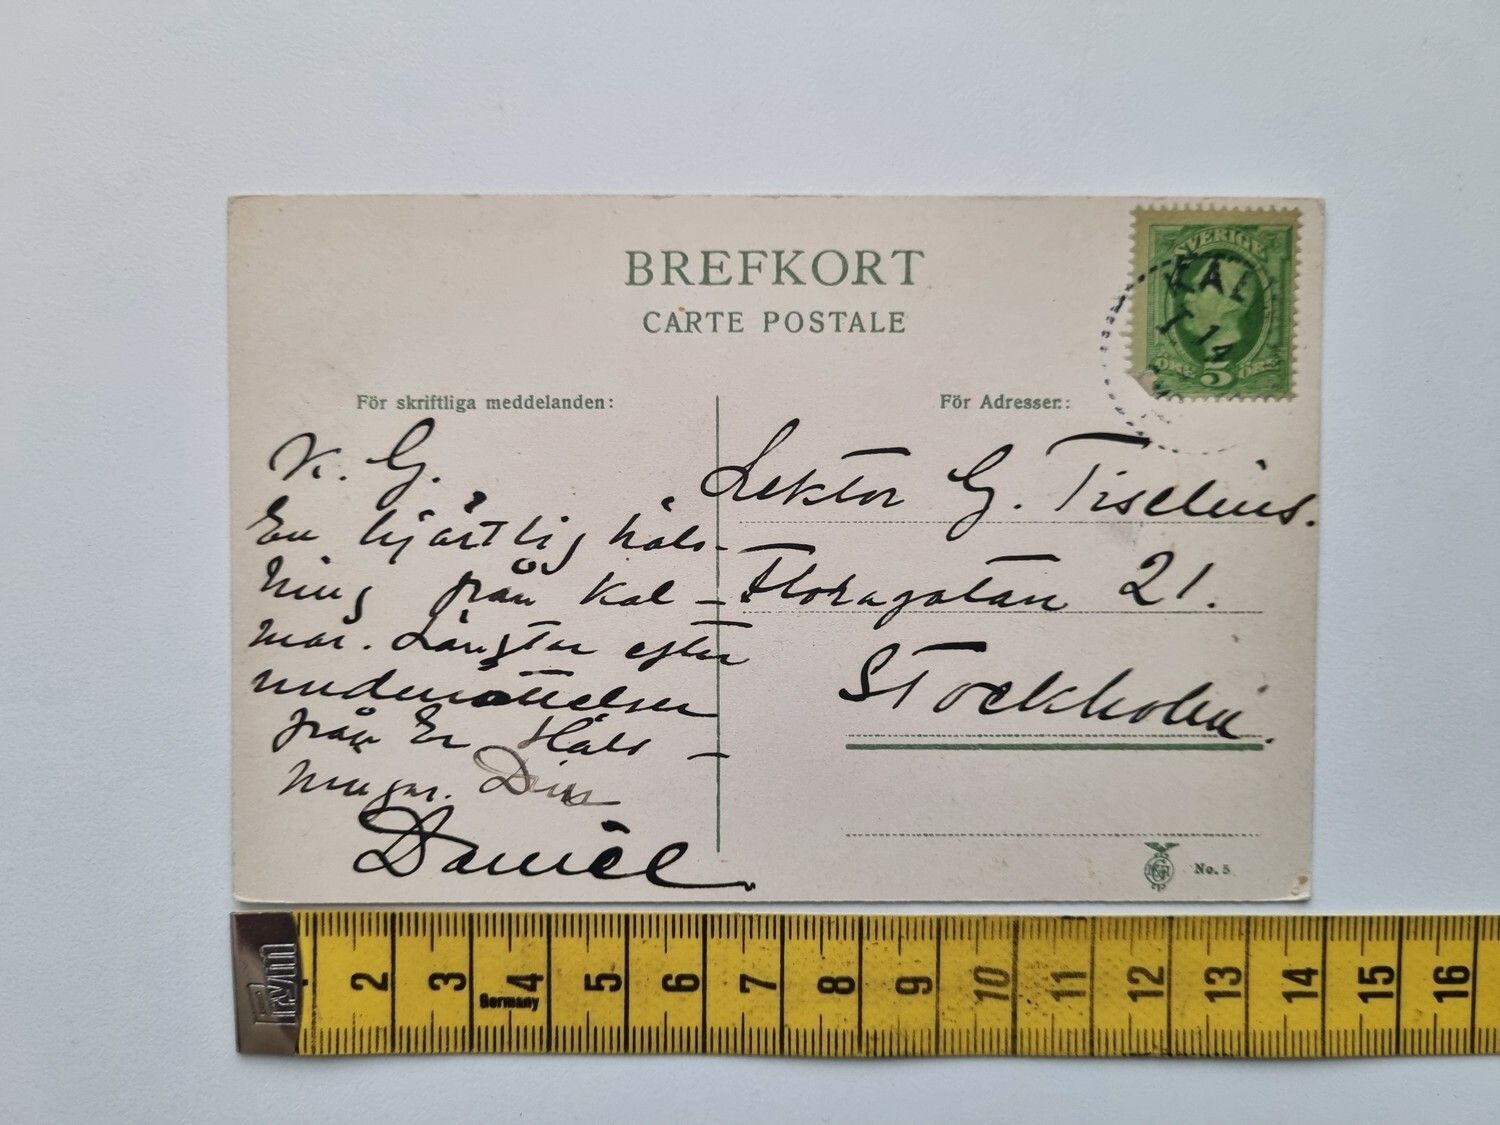 BREFKORT
CARTE POSTALE
SVERIGE
KAL
14
ÖRE 5 ÖRE
För skriftliga meddelanden:
K. G.
En hjärtlig häls-
ning från Kal-
mar. Längtar efter
underrättelser
från Er Häls-
ningar. Din
Daniel.
För Adressen:
Lektor G. Tiselius.
Floragatan 21.
Stockholm.
No. 5
Prym
2 3 4 5 6 7 8 9 10 11 12 13 14 15 16
Germany